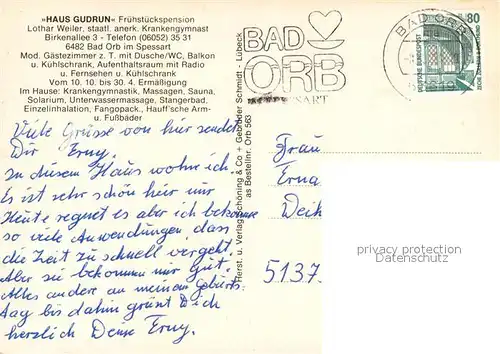 »HAUS GUDRUN« Frühstückspension
Lothar Weiler, staatl. anerk. Krankengymnast
Birkenallee 3 - Telefon (06052) 35 31
6482 Bad Orb im Spessart
Mod. Gästezimmer z. T. mit Dusche/WC, Balkon
u. Kühlschrank, Aufenthaltsraum mit Radio
u. Fernsehen u. Kühlschrank
Vom 10. 10. bis 30. 4. Ermäßigung
Im Hause: Krankengymnastik, Massagen, Sauna,
Solarium, Unterwassermassage, Stangerbad,
Einzelinhalation, Fangopack., Hauff'sche Arm-
u. Fußbäder
Viele Grüsse von hier sendet
Dir Erny.
In diesem Haus wohne ich.
Es ist sehr schön hier nur
Heute regnet es aber ich bekomme
so viele Anwendungen, dass
die Zeit zu schnell vergeht.
Aber sie bekommen mir gut.
Alles andere an meinem Geburts-
tag bis dahin grüst Dich
herzlich Deine Erny.
Herst. u. Verlag Schöning & Co + Gebrüder Schmidt · Lübeck
as Bestellnr. Orb 563
BAD
ORB
SPESSART
BAD ORB
80
DEUTSCHE BUNDESPOST
Frau
Erna
Deih
5137
privacy protection
Datenschutz